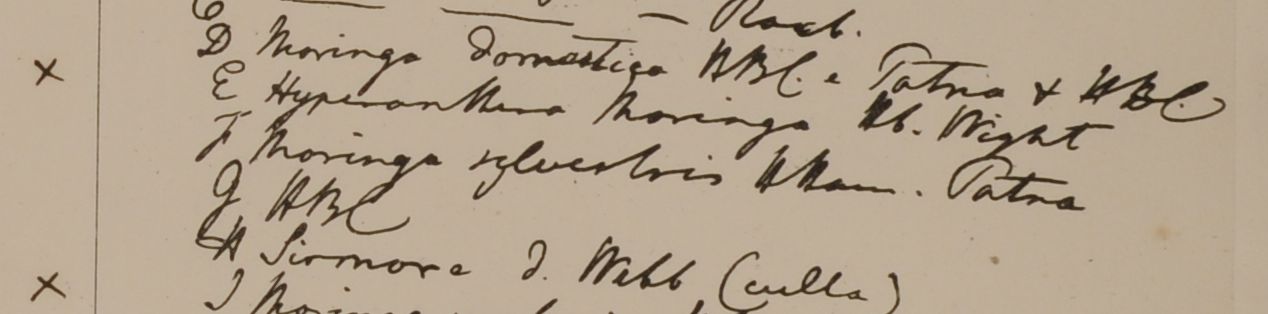 C — — — Roxb.
× D Moringa domestica HBC. e Patna & HBC
E Hyperanthera Moringa Hb. Wight
F Moringa sylvestris HHam. Patna
G HBC
H Sirmore D. Webb (culta)
× I Moringa